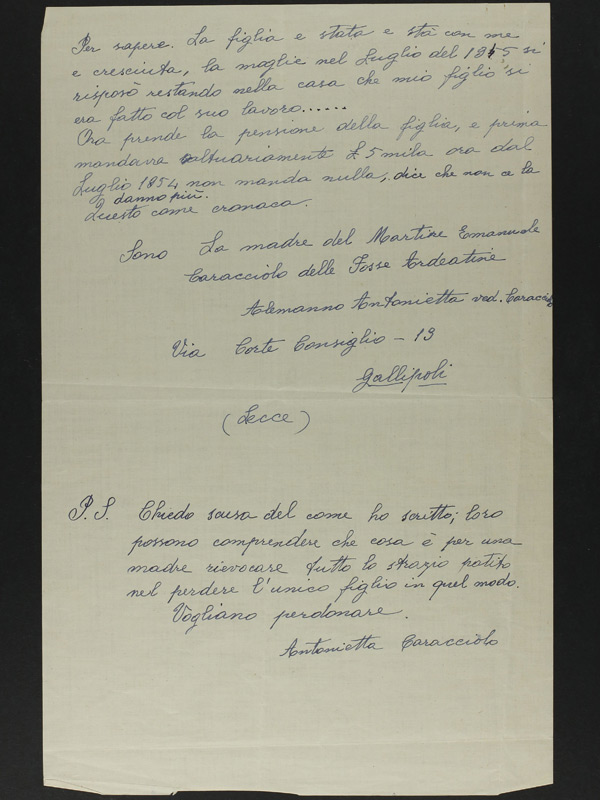 Per sapere. La figlia è stata e sta con me
e cresciuta, la moglie nel Luglio del 1945 si
risposò restando nella casa che mio figlio si
era fatto col suo lavoro......
Ora prende la pensione della figlia, e prima
mandava saltuariamente £ 5 mila ora dal
Luglio 1954 non manda nulla, dice che non ce la
danno più.
Questo come cronaca.
Sono La madre del Martire Emanuele
Caracciolo delle Fosse Ardeatine
Alemanno Antonietta ved. Caracciolo
Via Corte Consiglio - 13
Gallipoli
(Lecce)
P. S. Chiedo scusa del come ho scritto; loro
possono comprendere che cosa è per una
madre rievocare tutto lo strazio patito
nel perdere l'unico figlio in quel modo.
Vogliano perdonare.
Antonietta Caracciolo